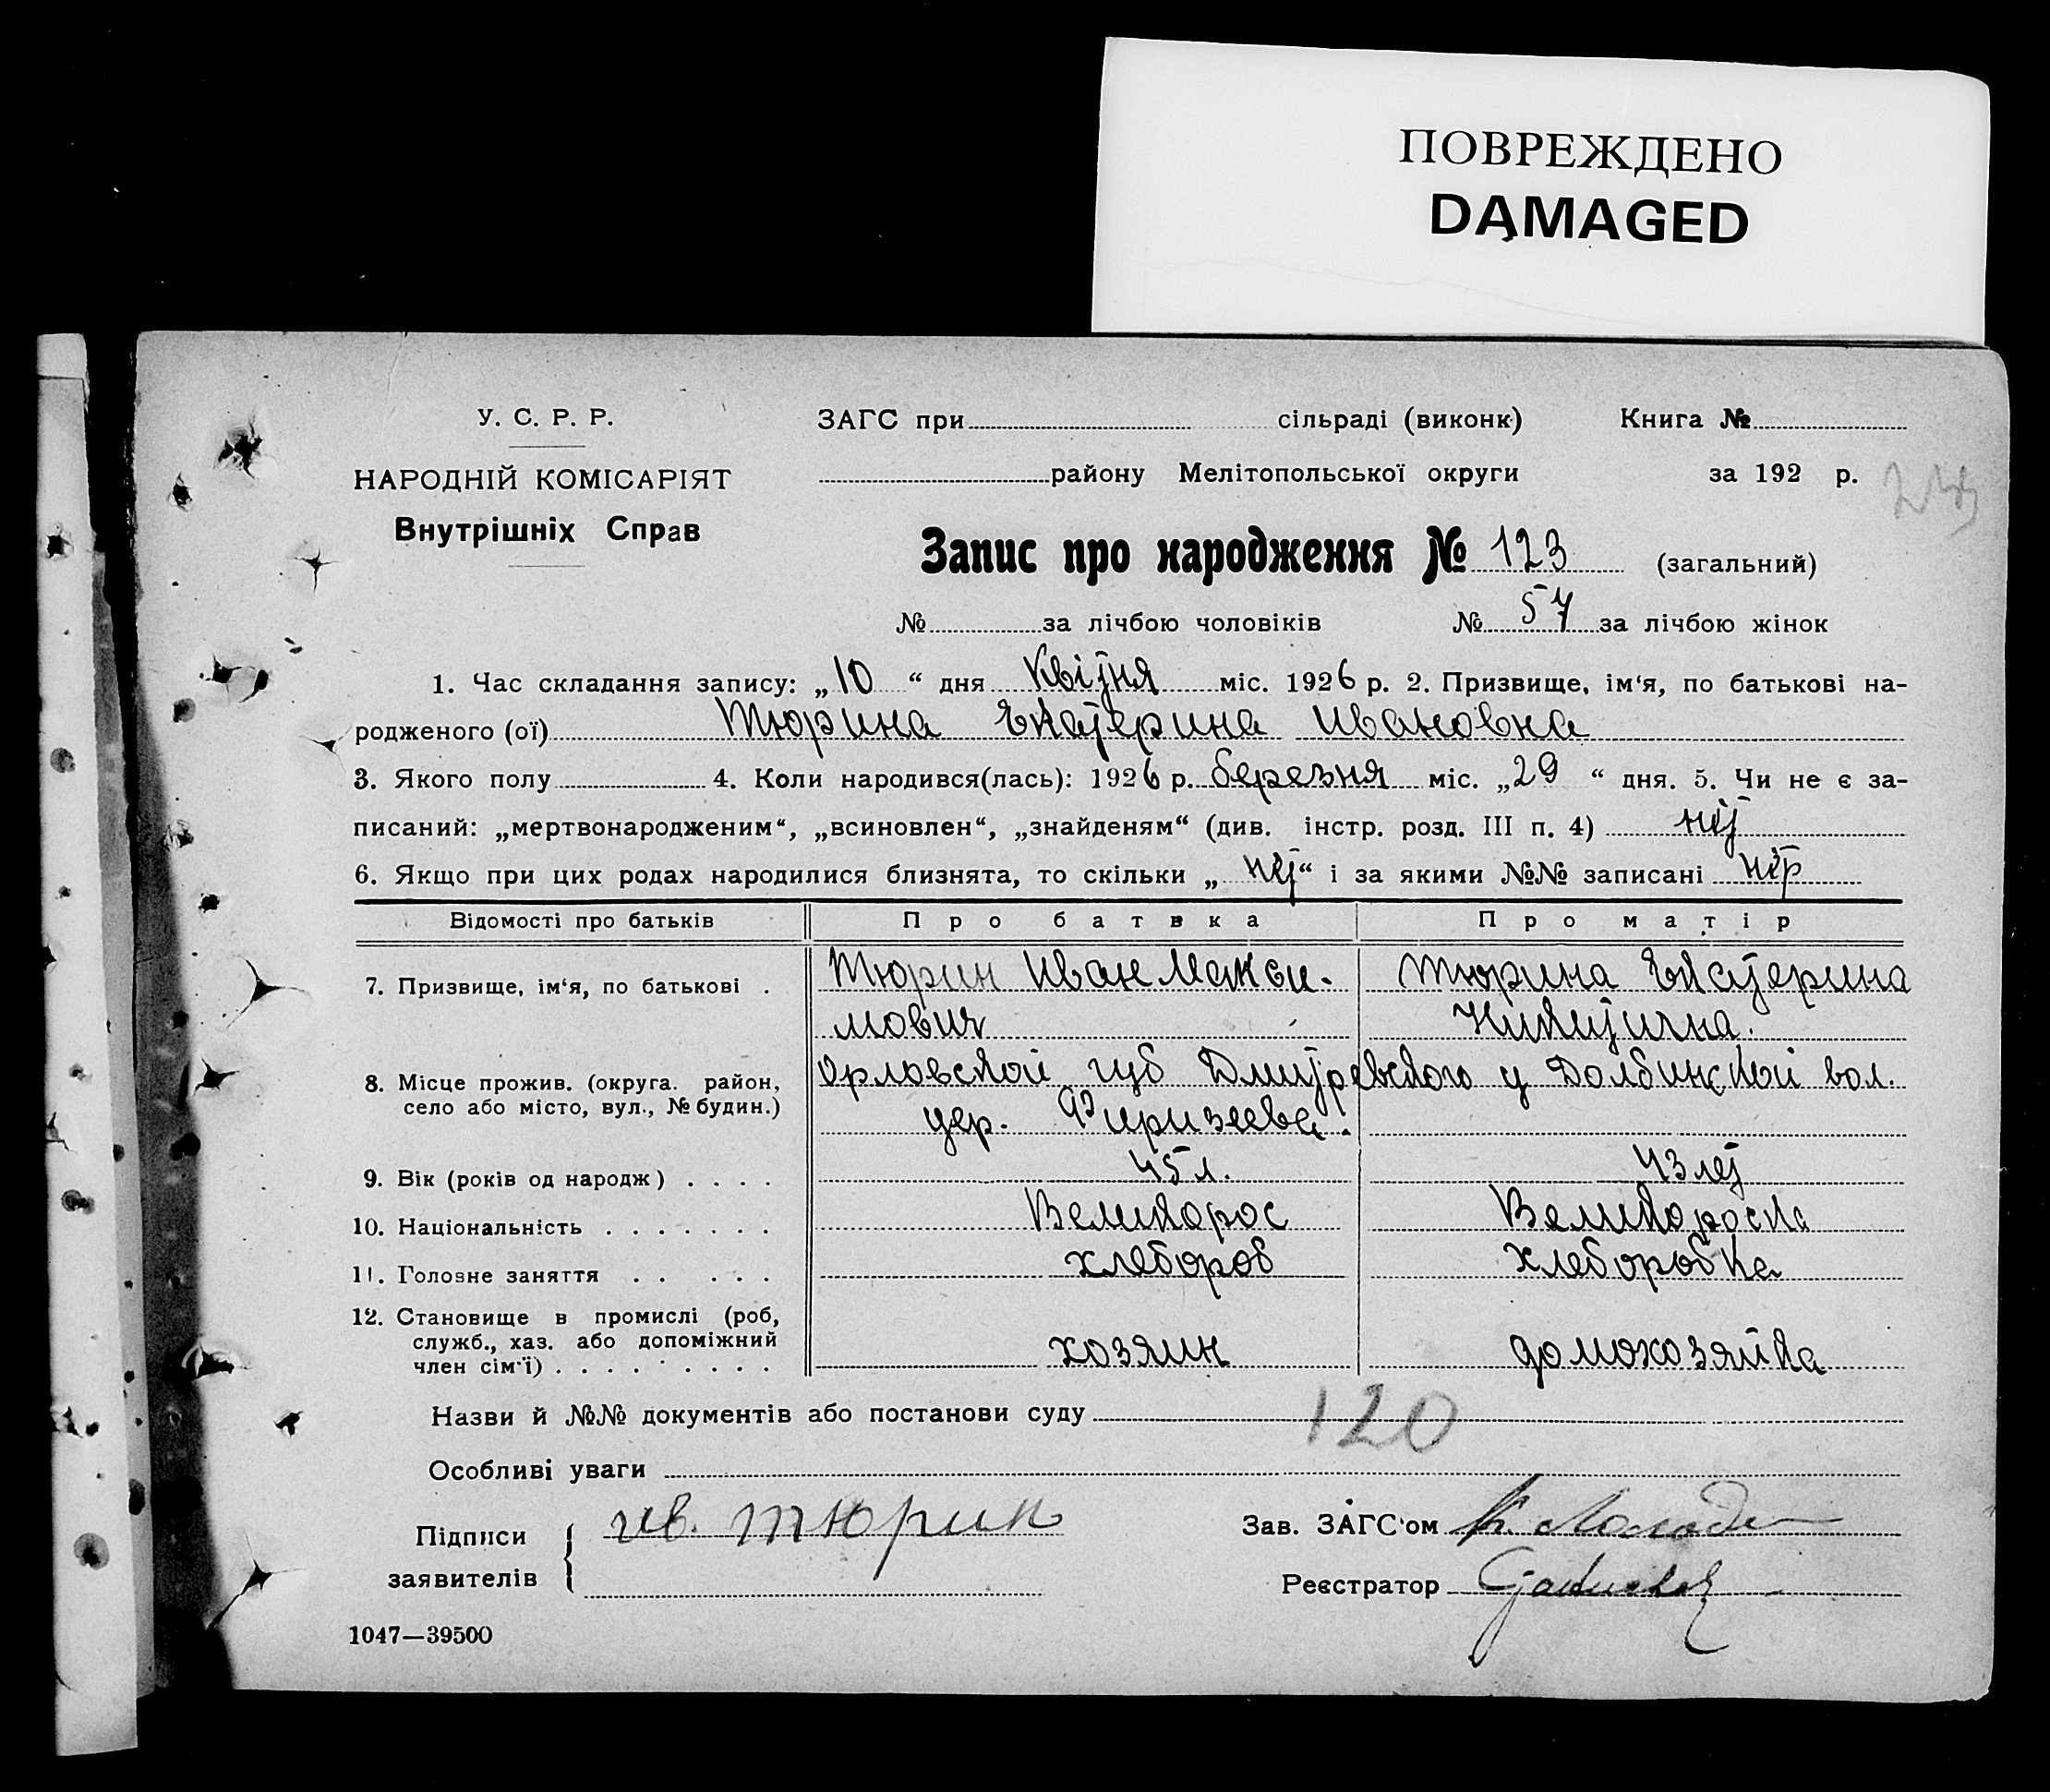 ПОВРЕЖДЕНО
DAMAGED
У. С. Р. Р.
НАРОДНІЙ КОМІСАРІЯТ
Внутрішніх Справ
ЗАГС при сільраді (виконк) Книга №
району Мелітопольської округи за 192 р.
Запис про народження № 123 (загальний)
№ за лічбою чоловіків № 57 за лічбою жінок
1. Час складання запису: „10“ дня Квітня міс. 1926 р. 2. Призвище, ім‘я, по батькові на-
родженого (ої) Тюрина Екатерина Ивановна
3. Якого полу 4. Коли народився(лась): 1926 р. березня міс. „29“ дня. 5. Чи не є за-
писаний: „мертвонародженим“, „всиновлен“, „знайденям“ (див. інстр. розд. III п. 4) ніт
6. Якщо при цих родах народилися близнята, то скільки „ніт“ і за якими №№ записані
Відомості про батьків Про батвка Про матір
7. Призвище, ім‘я, по батькові . Тюрин Иван Макси- Тюрина Екатерина
мович Никитична.
8. Місце прожив. (округа. район, Орловской губ Дмитревского у Долбинской вол.
село або місто, вул., № будин.) дер.
9. Вік (років од народж) . . . . 45 л. 43 лет
10. Національність . . . . . . . Великорос Великороска
11. Головне заняття . . . . . хлебороб хлеборобка
12. Становище в промислі (роб,
служб., хаз. або допоміжний хозяин домохозяйка
член сім‘ї) . . . . . . . . .
Назви й №№ документів або постанови суду 120
Особливі уваги
Підписи ив. Тюрин Зав. ЗАГС‘ом
заявителів Реєстратор
1047—39500